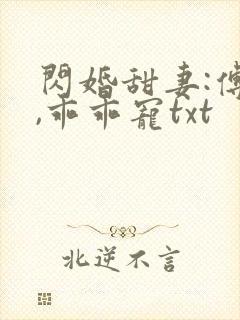 閃婚甜妻:傅
,乖乖寵txt
北逆不言